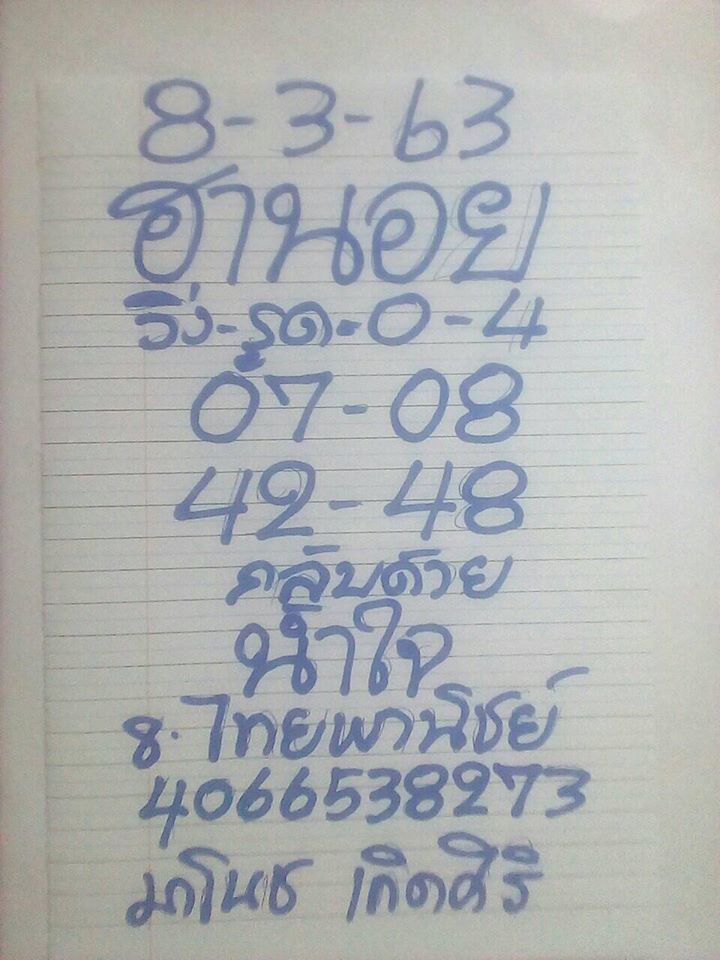 8-3-63
ฮานอย
วิ่ง-รูด-0-4
07-08
42-48
กลับด้วย
น้ำใจ
ธ.ไทยพานิชย์
4066538273
มาโนช เกิดศิริ